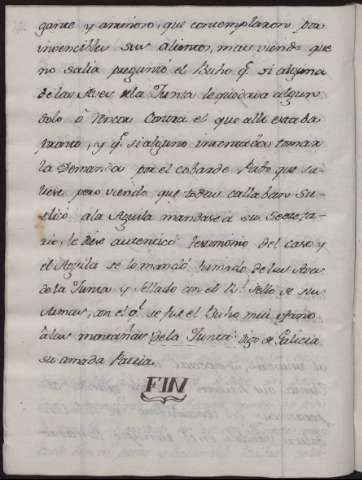 gante y anterioro, que contemplaron por
invencibles sus alientos, mas viendo que
no salia preguntó el Buho q.e si alguna
de las Aves de la Junta le quedava algun
dolo ô rencor Contra el que alli estaba
pronto, y q.e si alguno intentaba tomar
la Demanda por el cobarde Pabo que sa-
liese pero viendo que todas callaban Su-
plicó a la Aguila mandase a su Secreta-
rio, le diese autentico testimonio del caso y
el Aguila se lo mandó firmado de las Aves
de la Junta y Sellado con el R.l Sello de sus
Armas, con el q.l se fue el Buho mui ufano
a las montañas de la Junta digo de Galicia
su amada Patria.
FIN